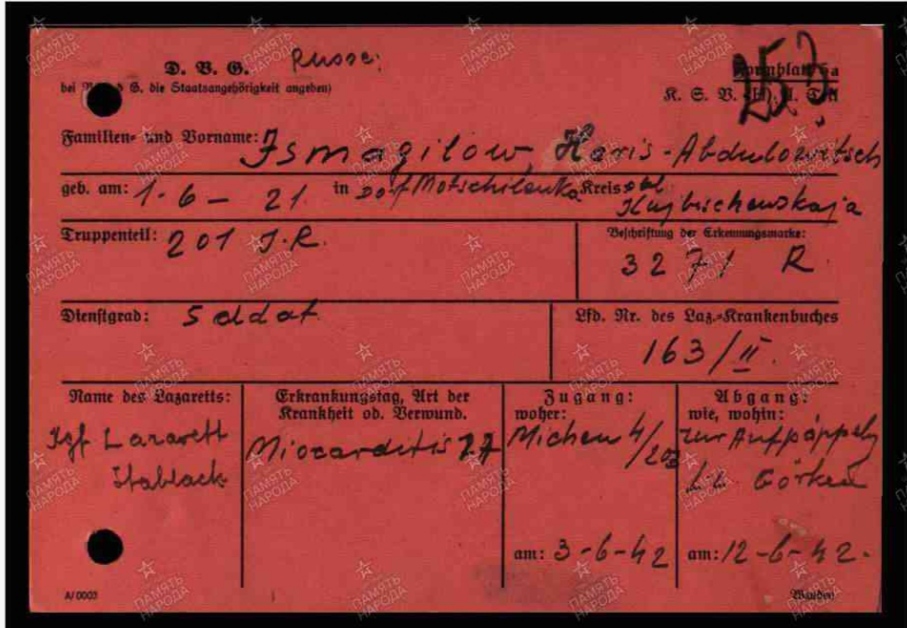 D. B. G. Russe
bei B. d G. die Staatsangehörigkeit angeben)
K. S. B.
Familien- und Vorname: Ismagilow, Haris-Abdulowitsch
geb. am: 1-6-21 in Dorf Motschilenka Kreis obl.
Kujbischewskaja
Truppenteil: 201 J.R.
Beschriftung der Erkennungsmarke:
3271 R
Dienstgrad: Soldat
Lfd. Nr. des Laz.-Krankenbuches
163/II.
Name des Lazaretts:
Kgf Lazarett
Stablack
Erkrankungstag, Art der
Krankheit od. Verwund.
Miocarditis
Zugang:
woher:
Michen 4/203
am: 3-6-42
Abgang:
wie, wohin:
zur Aufpäppelg
Görken
am: 12-6-42.
A/0003
ПАМЯТЬ
НАРОДА